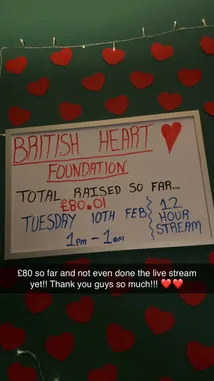 BRITISH HEART
FOUNDATION
TOTAL RAISED SO FAR...
£80.01
TUESDAY 10TH FEB
1pm - 1am
12
HOUR
STREAM
£80 so far and not even done the live stream
yet!! Thank you guys so much!!! ❤️❤️